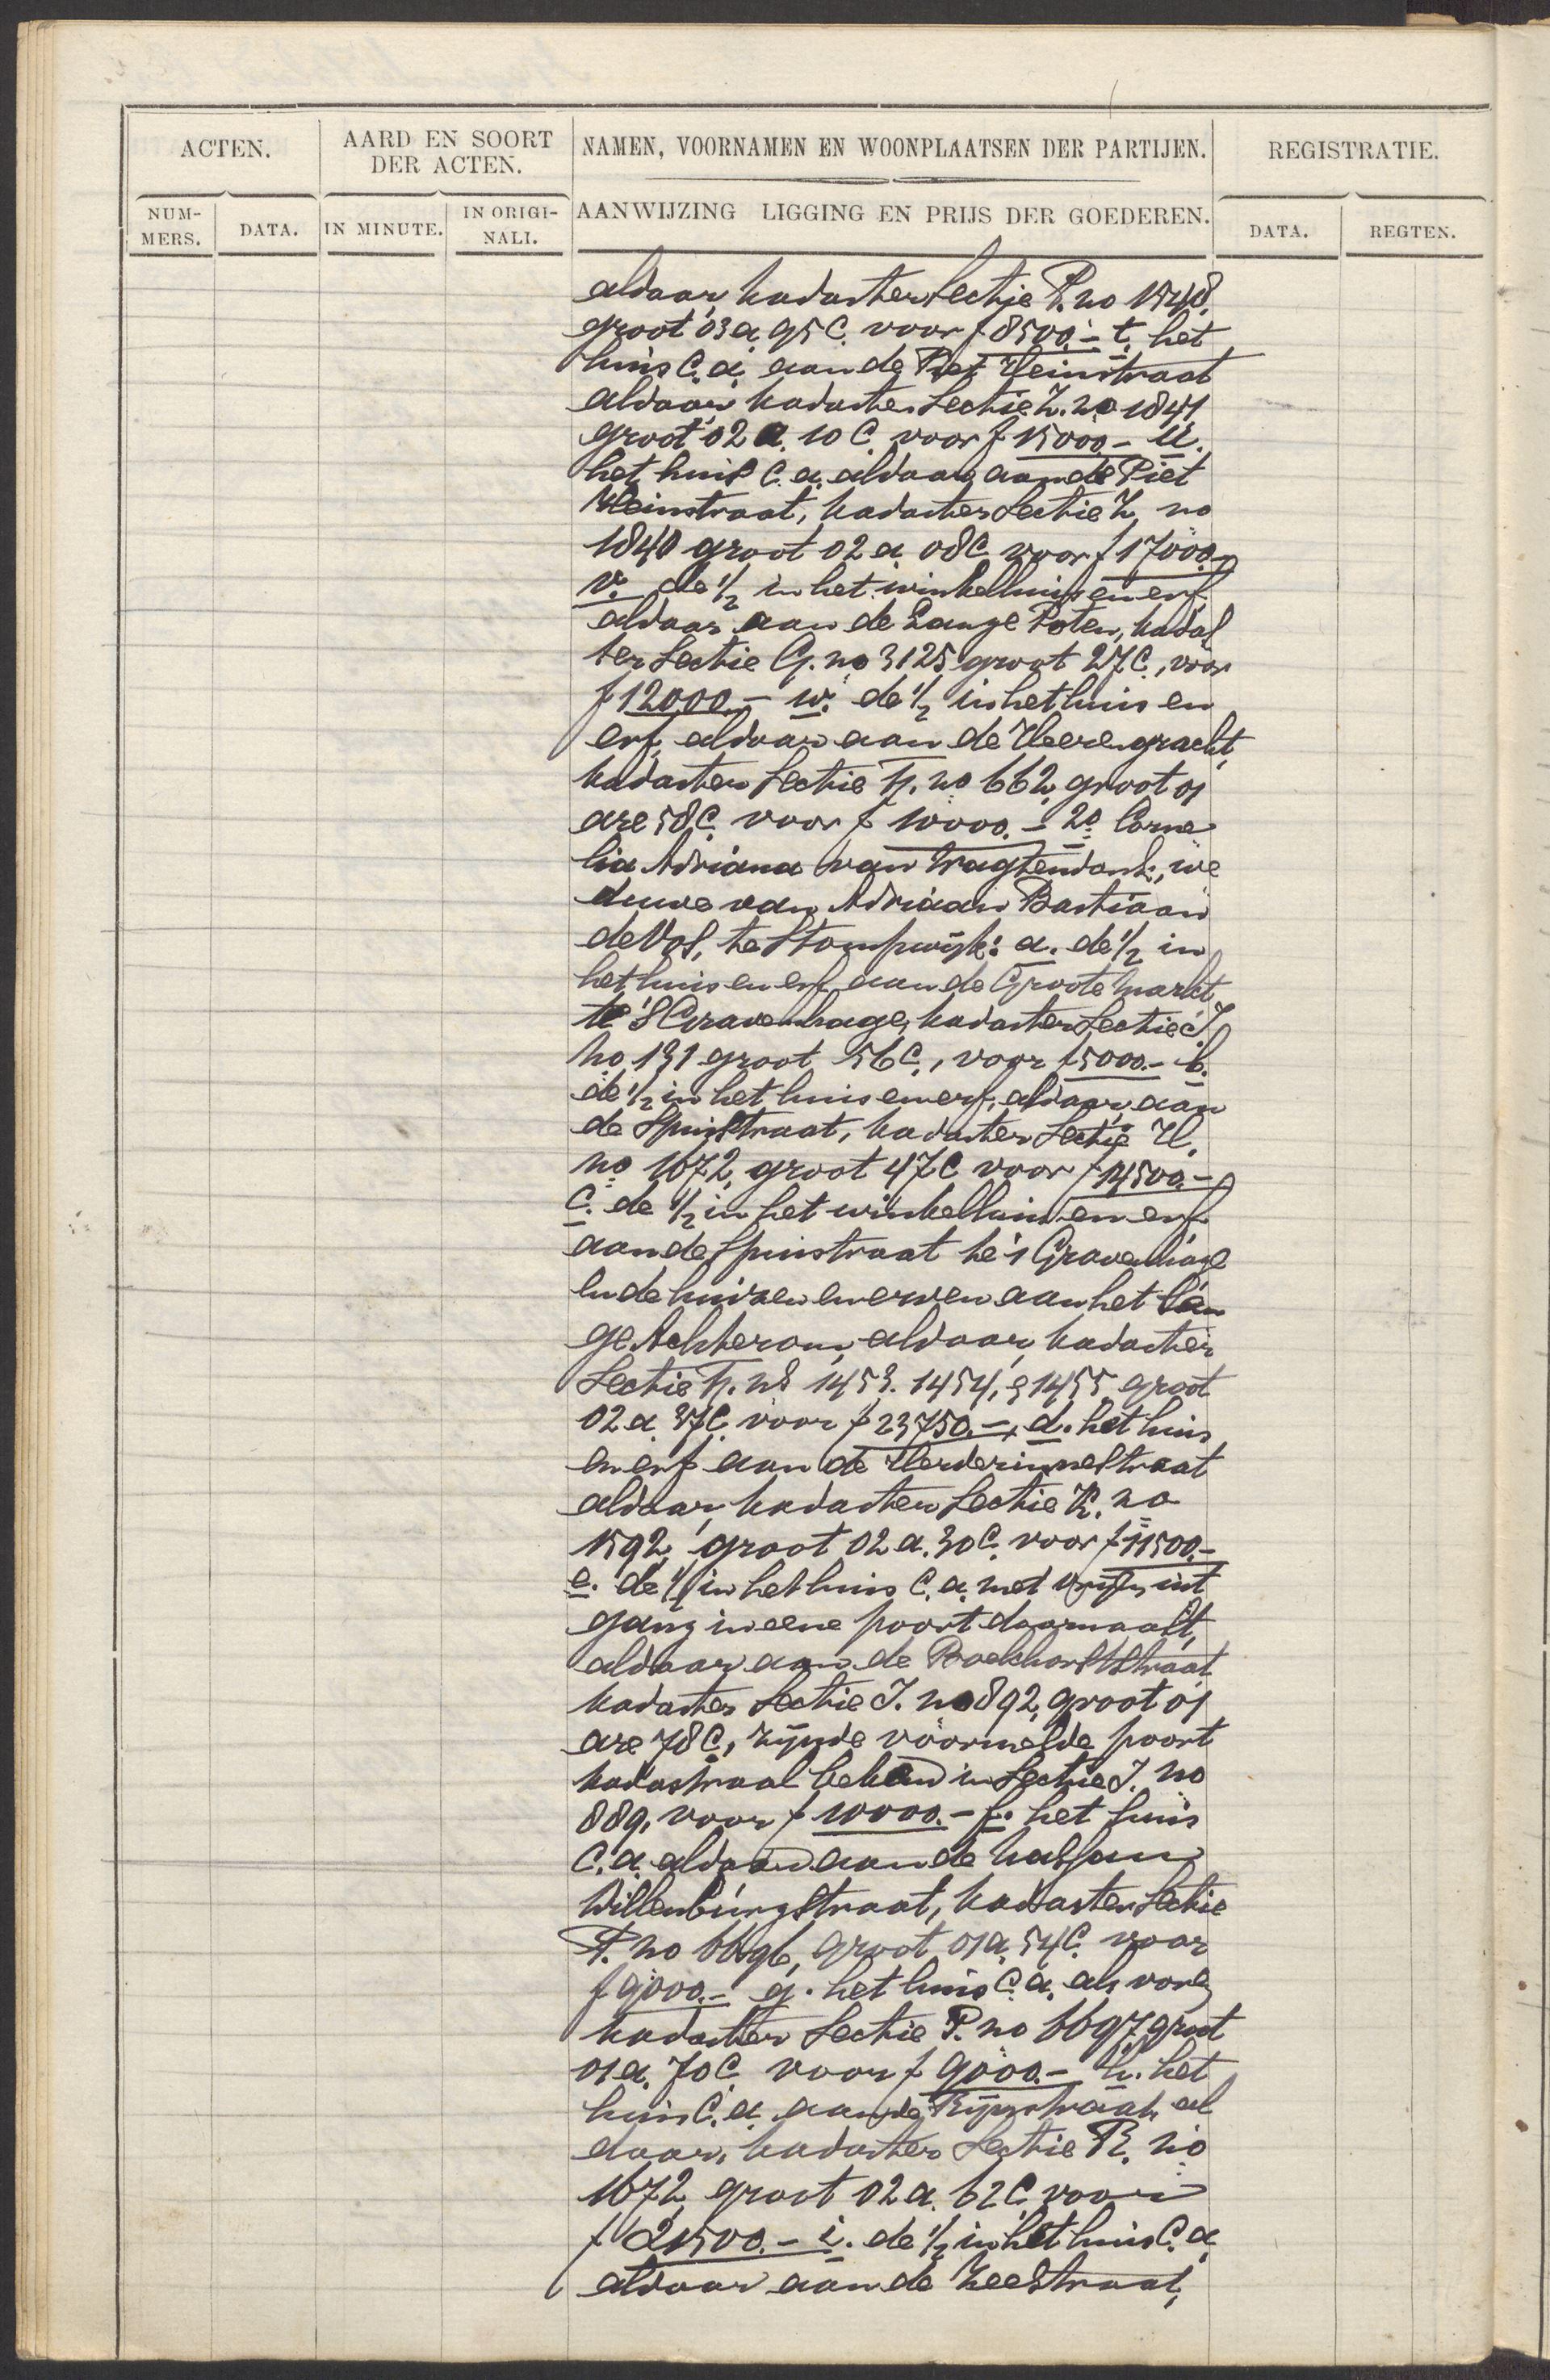 ACTEN.
AARD EN SOORT
DER ACTEN.
NAMEN, VOORNAMEN EN WOONPLAATSEN DER PARTIJEN.
REGISTRATIE.
NUM-
MERS.
DATA.
IN MINUTE.
IN ORIGI-
NALI.
AANWIJZING LIGGING EN PRIJS DER GOEDEREN.
DATA.
REGTEN.
aldaar, kadaster Sectie P. no 1548,
groot 03 a 95 C. voor f 8500.- t. het
huis C. a. aan de Piet Heinstraat
aldaar, kadaster Sectie Z. no 1841
groot 02 a. 10 C. voor f 15000.- u.
het huis C. a. aldaar, aan de Piet
Heinstraat, kadaster Sectie Z, no
1840 groot 02 a. 08 C voor f 17000.-
v. de ½ in het winkelhuis en erf
aldaar aan de Lange Poten, kadas
ter Sectie G. no 3125 groot 27 C., voor
f 12000.- w. de ½ in het huis en
erf, aldaar aan de Heerengracht,
kadaster Sectie H. no 662, groot 01
are 58 C. voor f 10000.- 2o. Corne
lia Adriana van Wagtendonk, we
duwe van Adriaan Bastiaan
de Vos, te Stompwijk: a. de ½ in
het huis en erf aan de Groote Markt
te 's Gravenhage, kadaster Sectie I,
no 131 groot 56 C., voor f 5000.- b.
de ½ in het huis en erf, aldaar, aan
de Spuistraat, kadaster Sectie H.
no 1672, groot 47 C voor f 14500.-
C. de ½ in het winkelhuis en erf
aan de Spuistraat te 's Gravenhage
en de huizen en erven aan het Lan
ge Achterom, aldaar, kadaster
Sectie H. ns 1453. 1454, & 1455, groot
02 a. 37 C. voor f 23750.-, d. het huis
en erf aan de Herderinnestraat
aldaar, kadaster Sectie K. no
1592, groot 02 a. 30 C. voor f 11500.-
e. de ½ in het huis C. a. met vrijen uit
gang in eene poort daarnaast,
aldaar aan de Boekhorststraat
kadaster Sectie I. no 892, groot 01
are 78 C, zijnde voormelde poort
kadastraal bekend in Sectie I. no
889, voor f 10000.- f. het huis
C. a. aldaar aan de van
Willenburgstraat, kadaster Sectie
P. no 6696, groot 01 a. 54 C. voor
f 9000.- g. het huis C. a. als voren
kadaster Sectie P. no 6697, groot
01 a. 70 C voor f 9000.- h. het
huis C. a. aan de Rijnstraat, al
daar, kadaster Sectie R. no
1672, groot 02 a. 62 C. voor
f 21500.- i. de ½ in het huis C. a.
aldaar aan de Zeestraat,